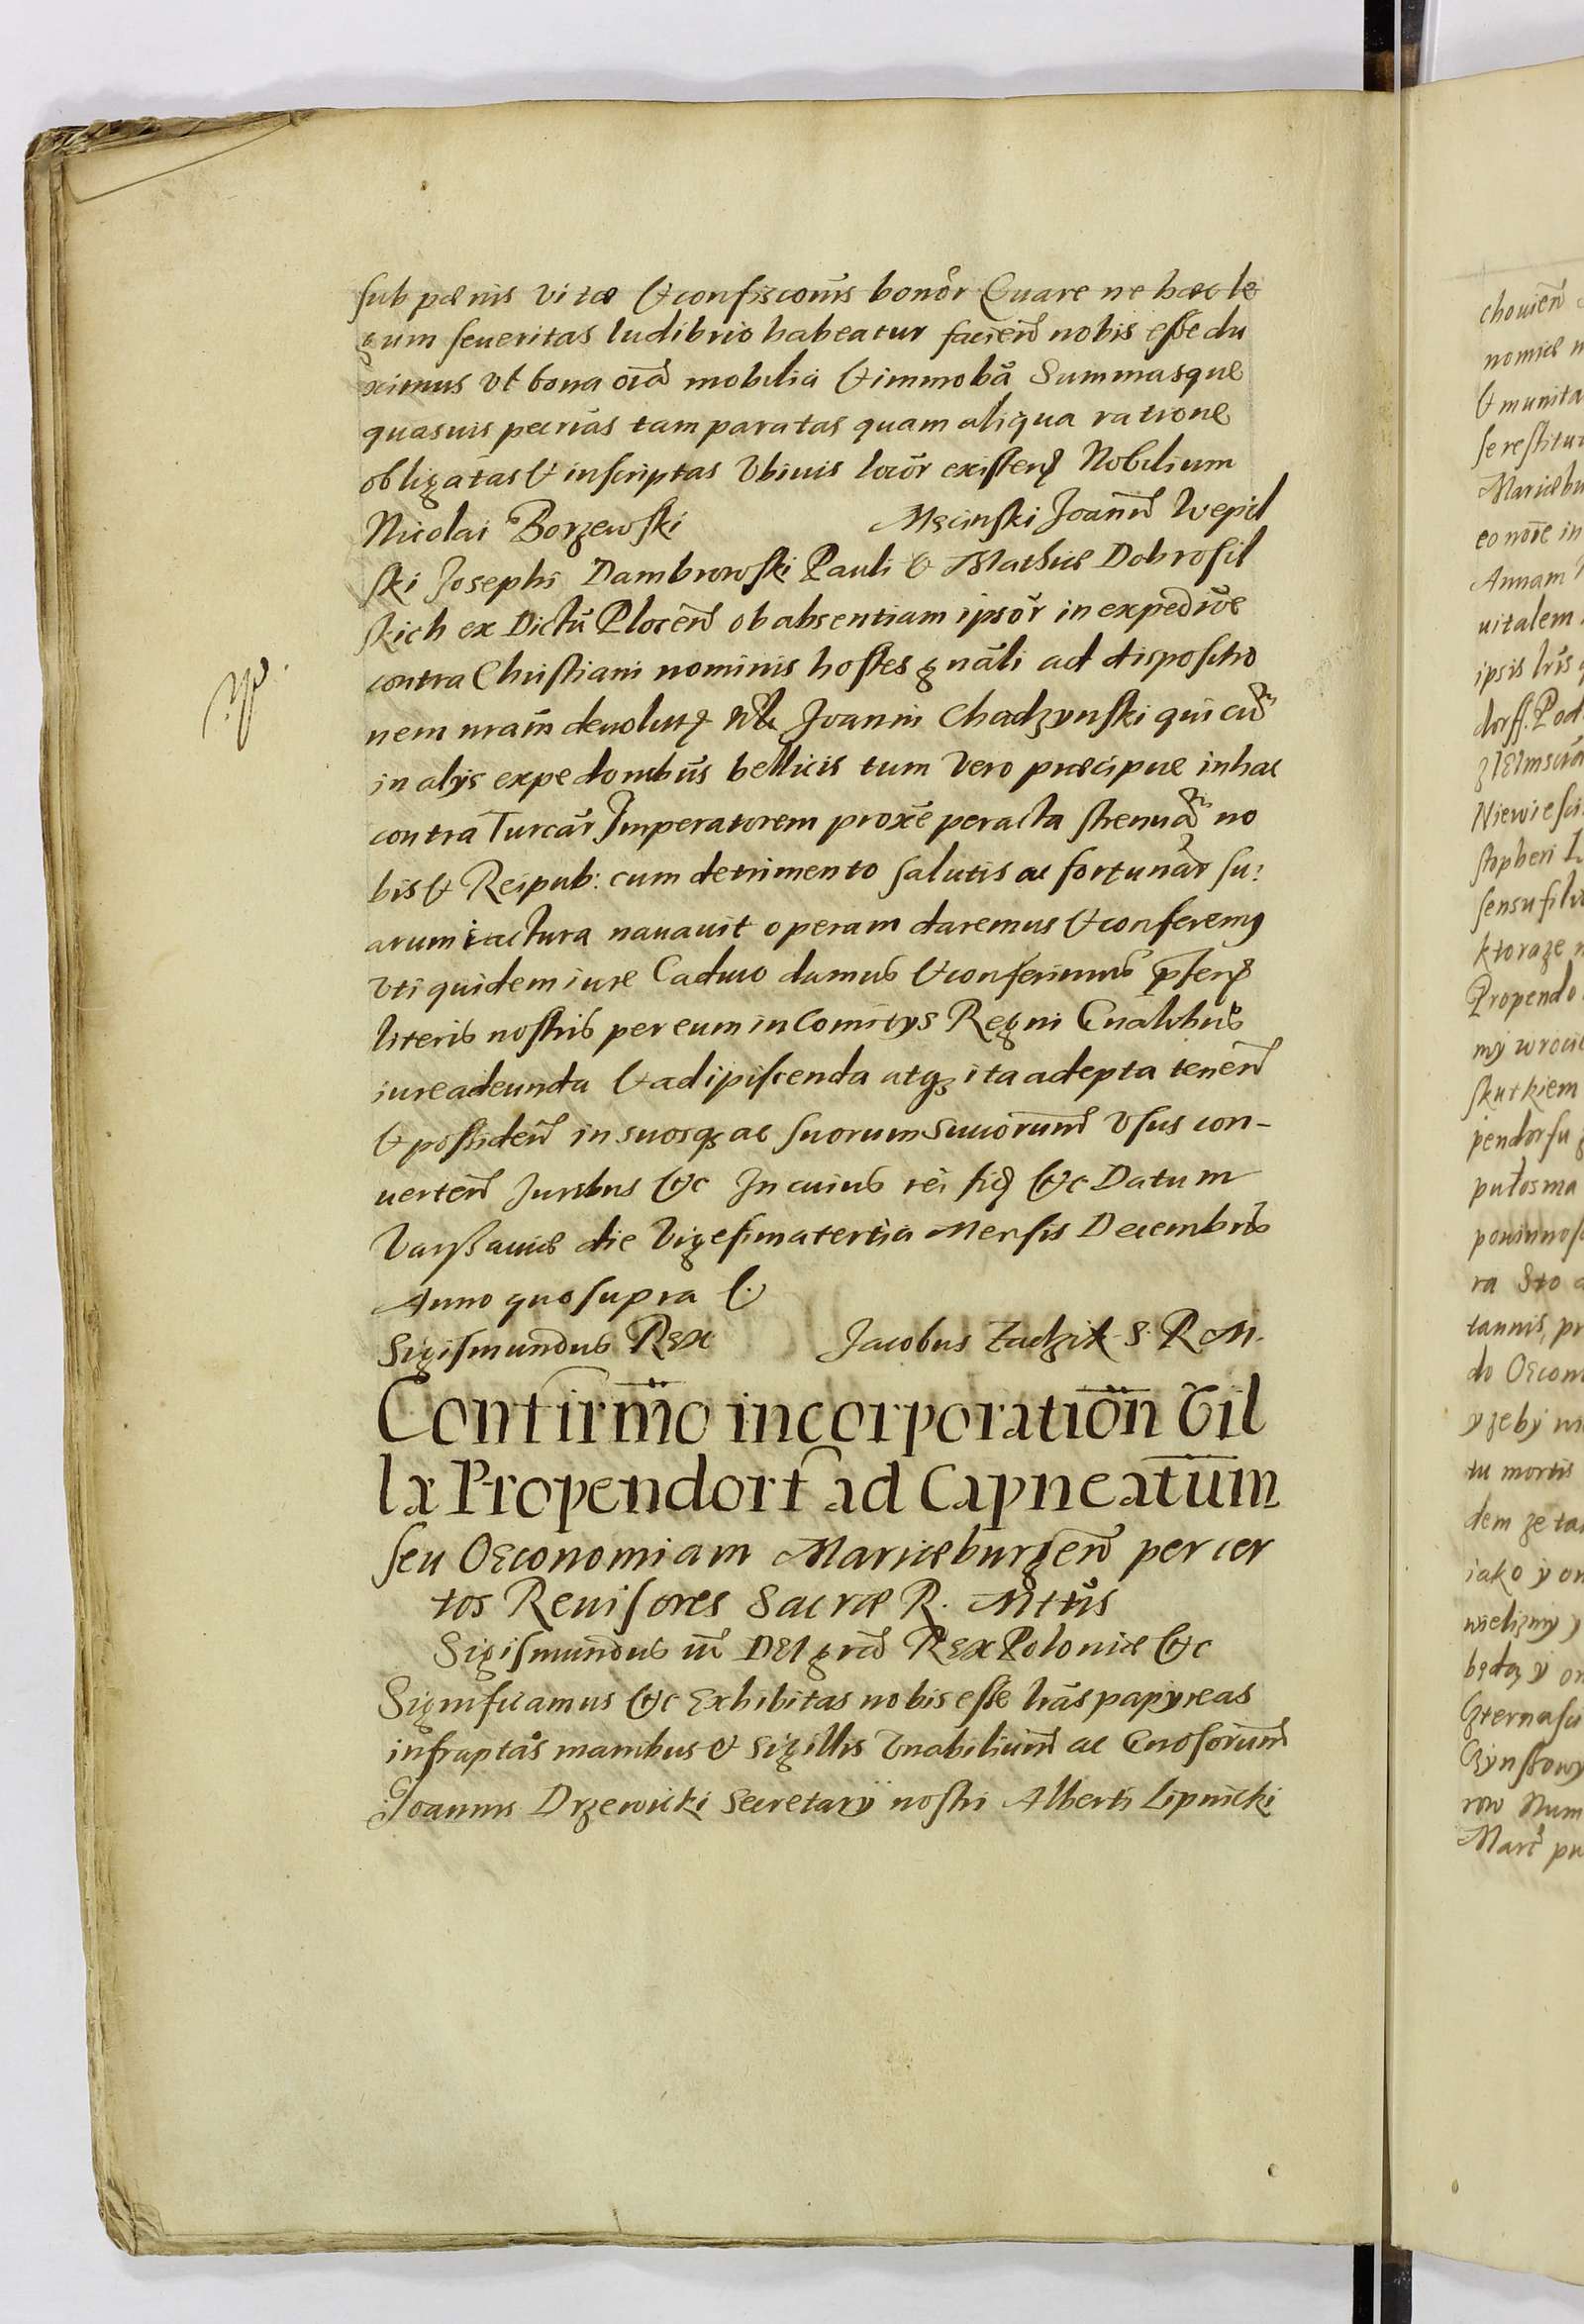 sub pœnis vitæ & confiscōnis bonōr Quare ne hæc le
gum seueritas ludibrio habeatur faciēn nobis esse du
ximus vt bona oīa mobilia & immobā Summasque
quasuis pecriās tam paratas quam aliqua ratione
obligatas & inscriptas Vbiuis locōr existen Nobilium
Nicolai Borzewski Męcinski Joann Wepil
ski Josephi Dambrowski Pauli & Mathiæ Dobrosil
skich ex Dictū Plocēn ob absentiam ipsōr in expedīoe
contra Christiani nominis hostes gnāli ad dispositio
nem nrām deuolut Joanni Chadzynski qui cū
in alys expedombūs bellicis tum Vero præcipue in hac
contra Turcār Imperatorem proxē peracta strenuā no
bis & Reipub: cum detrimento salutis ac fortunār su:
arum iactura nauauit operam daremus & conferemq
vti quidem iure Caduco damus & conferimus
literis nostris per eum in Comitys Regni Gnalibus
iure adeunda & adipiscenda atq ita adepta tenēn
& possidēn in suosq ac suorum Succorum Vsus con-
uertēn Juribus &c In cuius rei fid &c Datum
Varssauiæ die Vigesima tertia Mensis Decembris
Anno quo supra
Sigismundus Rex Jacobus Zadzik S. R. M.
Confirmō incorporatiōn Vil
læ Propendorf ad Capneatum
seu Oeconomiam Mariæburgēn per cer
tos Reuisores Sacræ R. Mttis
Sigismundus iii Dei grā Rex Poloniæ &c
Significamus &c Exhibitas nobis esse lrās papyreas
infraptās manibus & sigillis Vnabilium ac Gnosorum
Joannis Drzewicki Secretary nostri Alberti Lipnicki
chouiēn
nomiæ
& munita
se restitui
Mariæbu
eo noīe in
Annam
uitalem
ipsis lrīs
dorff. Pod
Niewiesci
stopheri
sensu filio
ktoraze
Propendo
my wrocic
skutkiem
pendorfu
powinnosc
ra Sto
tannis, pr
do Oecon
y zeby
tu mortis
dem ze ta
iako y on
wielizmy y
będą y
row Num